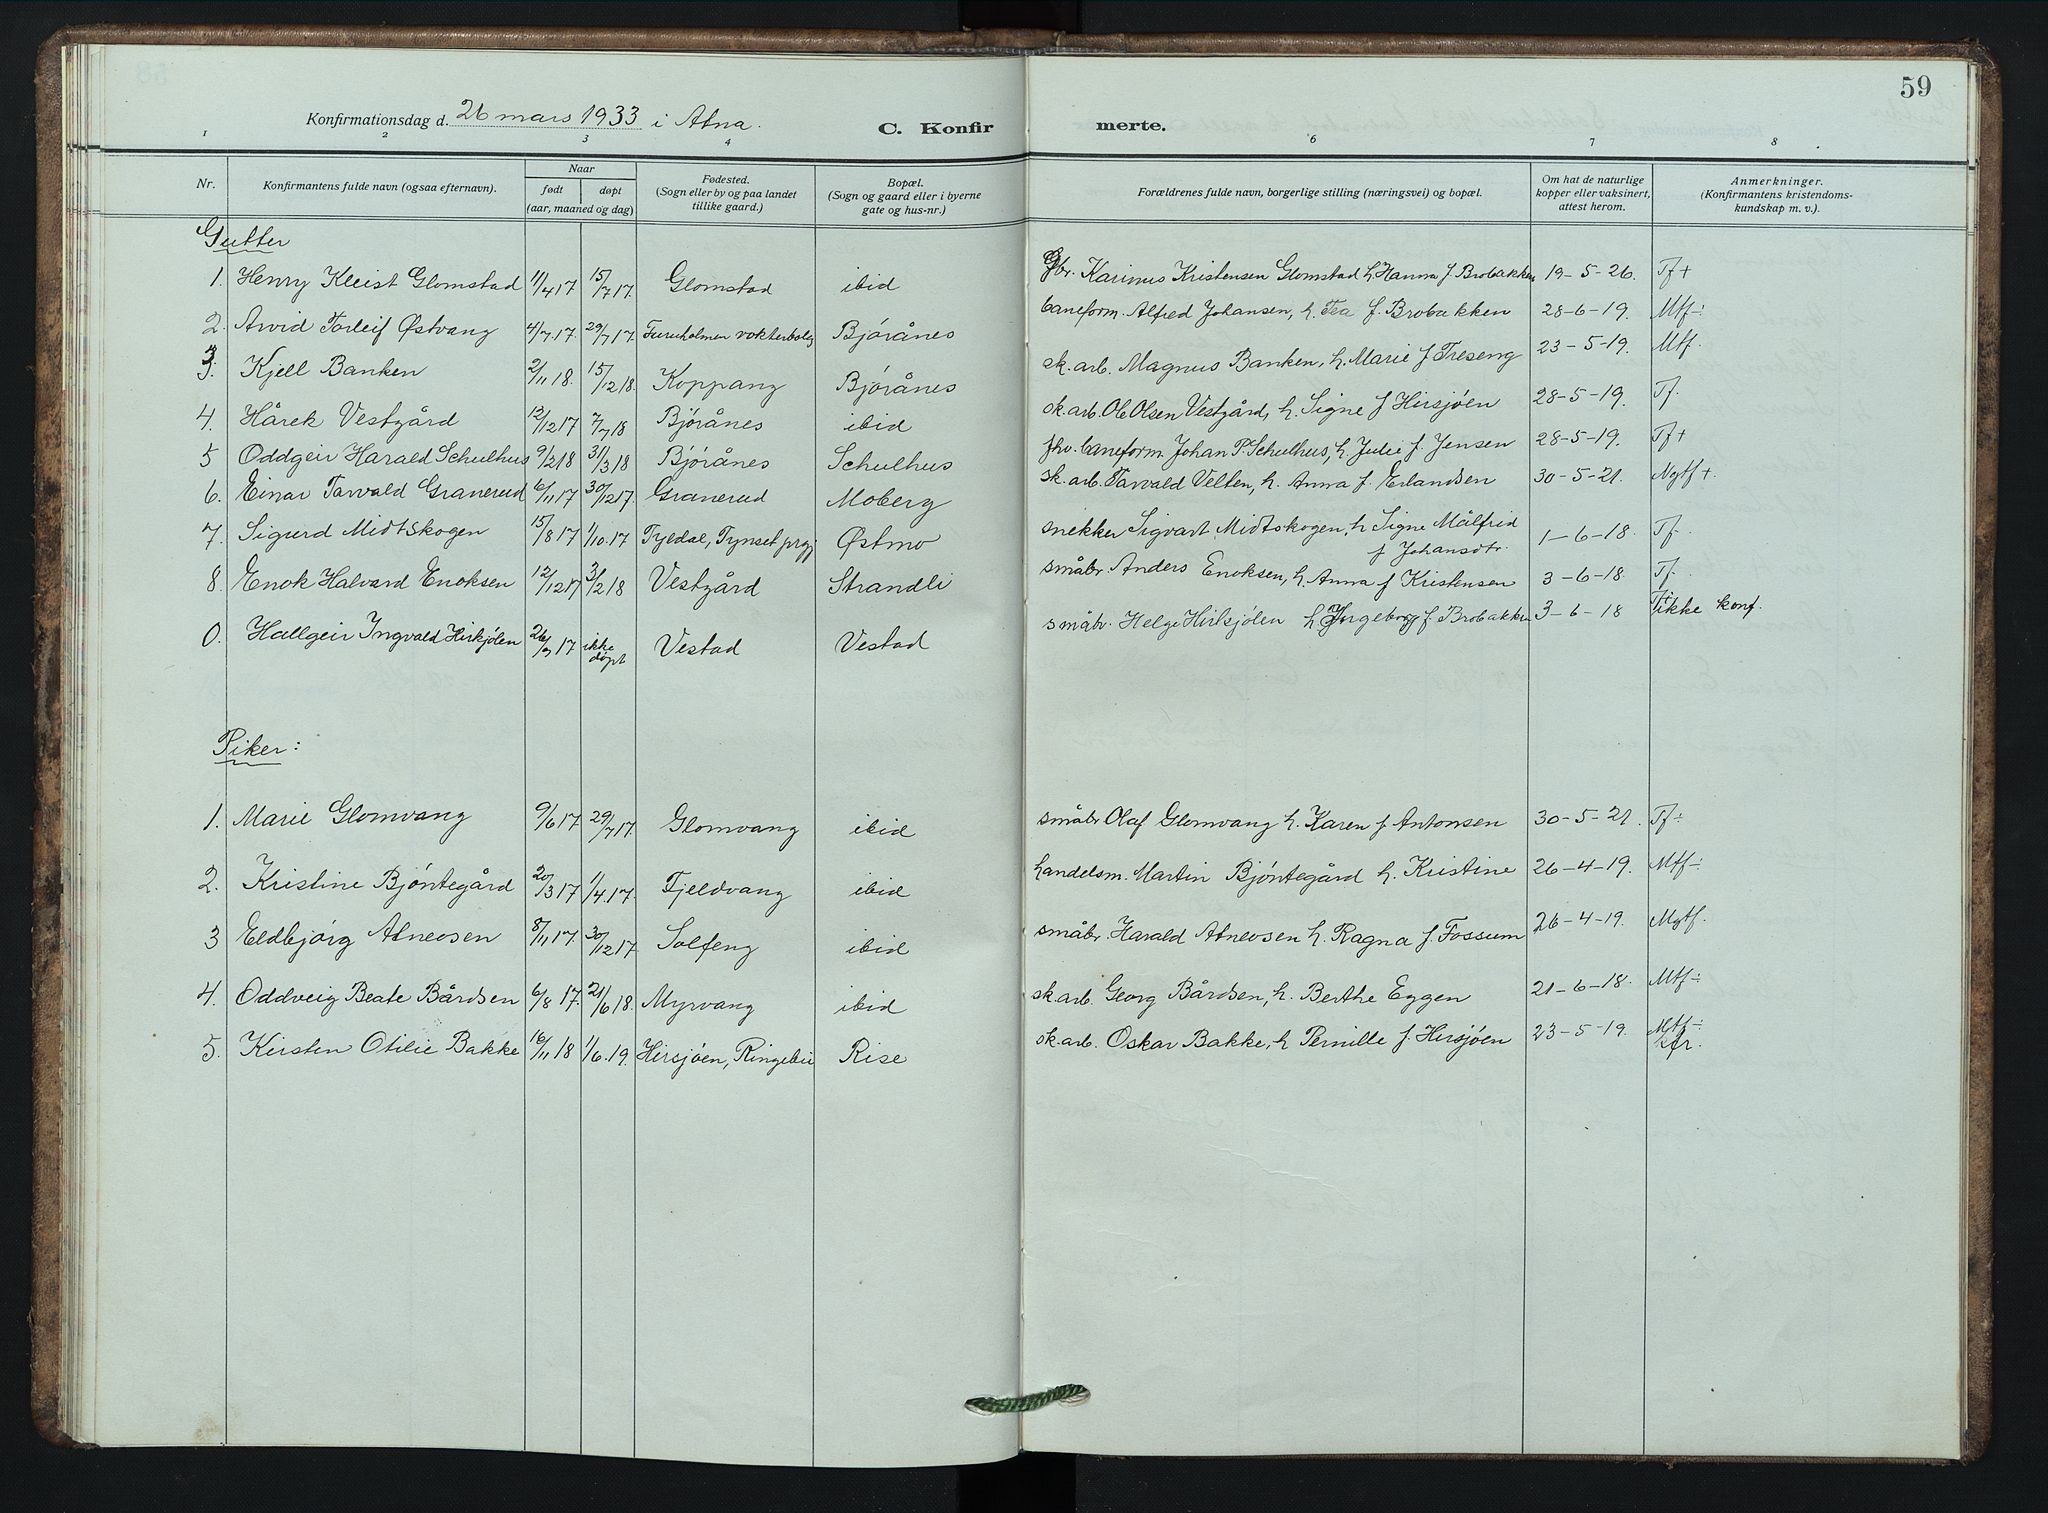 59
Konfirmationsdag d. 26 mars 1933 i Atna.
C. Konfirmerte.
1 2 3 4 6 7 8
Nr. Konfirmantens fulde navn (ogsaa efternavn). Naar født døpt (aar, maaned og dag) Fødested. (Sogn eller by og paa landet tillike gaard.) Bopæl. (Sogn og gaard eller i byerne gate og hus-nr.) Forældrenes fulde navn, borgerlige stilling (næringsvei) og bopæl. Om hat de naturlige kopper eller vaksinert, attest herom. Anmerkninger. (Konfirmantens kristendomskundskap m. v.).
Gutter
1. Henry Kleist Glomstad 11/4 17 15/7 17. Glomstad ibid Gbr. Karinus Kristensen Glomstad h. Hanna f. Brobakken 19-5-26. Tf+
2. Arvid Torleif Østvang 4/7 17. 29/7 17. Furuholmen vokterbolig Bjørånes baneform. Alfred Johansen, h. Tea f. Brobakken 28-6-19. Mtf÷
3. Kjell Banken 2/11 18. 15/12 18. Koppang Bjørånes sk. arb. Magnus Banken, h. Marie f Treseng 23-5-19. Mtf.
4. Hårek Vestgård 12/12 17 7/7 18 Bjørånes ibid sk. arb. Ole Olsen Vestgård, h. Signe f Hirsjøen 28-5-19. Tf.
5 Oddgeir Harald Schulhus 9/2 18 31/3 18 Bjørånes Schulhus fhv. baneform. Johan P. Schulhus, h. Julie f. Jensen 28-5-19. Tf+
6. Einar Torvald Granerud 6/11 17 30/12 17. Granerud Moberg sk. arb. Torvald Velten, h. Anna f. Erlandsen 30-5-21. Mgtf+.
7. Sigurd Midtskogen 15/8 17 1/10. 17 Tyldal, Tynset prgj Østmo snekker Sigvart Midtskogen, h Signe Målfrid f Johansdtr. 1-6-18. Tf.
8. Enok Halvard Enoksen 12/12 17 3/2 18 Vestgård Strandli småbr Anders Enoksen, h. Anna f Kristensen 3-6-18. Tf.
0. Hallgeir Ingvald Hirkjølen 26/9 17 ikke døpt Vestad Vestad småbr. Helge Hirkjølen h Ingeborg f Brobakken 3-6-18 Tf+ ikke konf.
Piker:
1. Marie Glomvang 9/6 17. 29/7 17. Glomvang ibid småbr Olaf Glomvang h. Karen f Antonsen 30-5-21. Tf÷
2. Kristine Bjøntegård 20/3 17 1/4. 17. Fjeldvang ibid handelsm. Martin Bjøntegård h. Kristine 26-4-19. Mtf÷
3 Eldbjørg Atneosen 8/11 17. 30/12 17. Solfeng ibid småbr. Harald Atneosen h. Ragna f. Fossum 26-4-19. Mgtf.
4. Oddveig Beate Bårdsen 6/8 17. 21/6 18. Myrvang ibid sk. arb. Georg Bårdsen, h. Berthe Eggen 21-6-18. Mtf÷
5. Kirsten Otilie Bakke 16/11 18 1/6. 19. Hirsjøen, Ringebu Rise sk. arb. Oskar Bakke, h Pernille f. Hirsjøen 23-5-19. Mtf÷